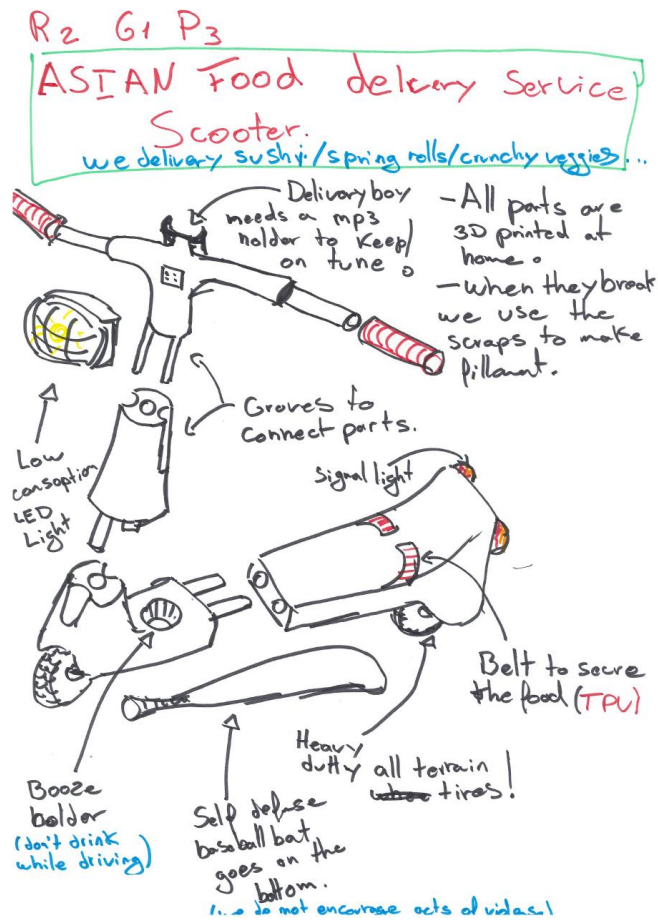 R2 G1 P3
ASIAN Food delivery Service
Scooter.
we delivery sushi/spring rolls/crunchy veggies...
Delivery boy
needs a mp3
holder to keep
on tune.
- All parts are
3D printed at
home.
- when they break
we use the
scraps to make
fillament.
Groves to
connect parts.
Low
consoption
LED
Light
Signal light
Belt to secure
the food (TPU)
Heavy
dutty all terrain
tires!
Booze
holder
(don't drink
while driving)
Self defense
baseball bat
goes on the
bottom.
do not encourage acts of